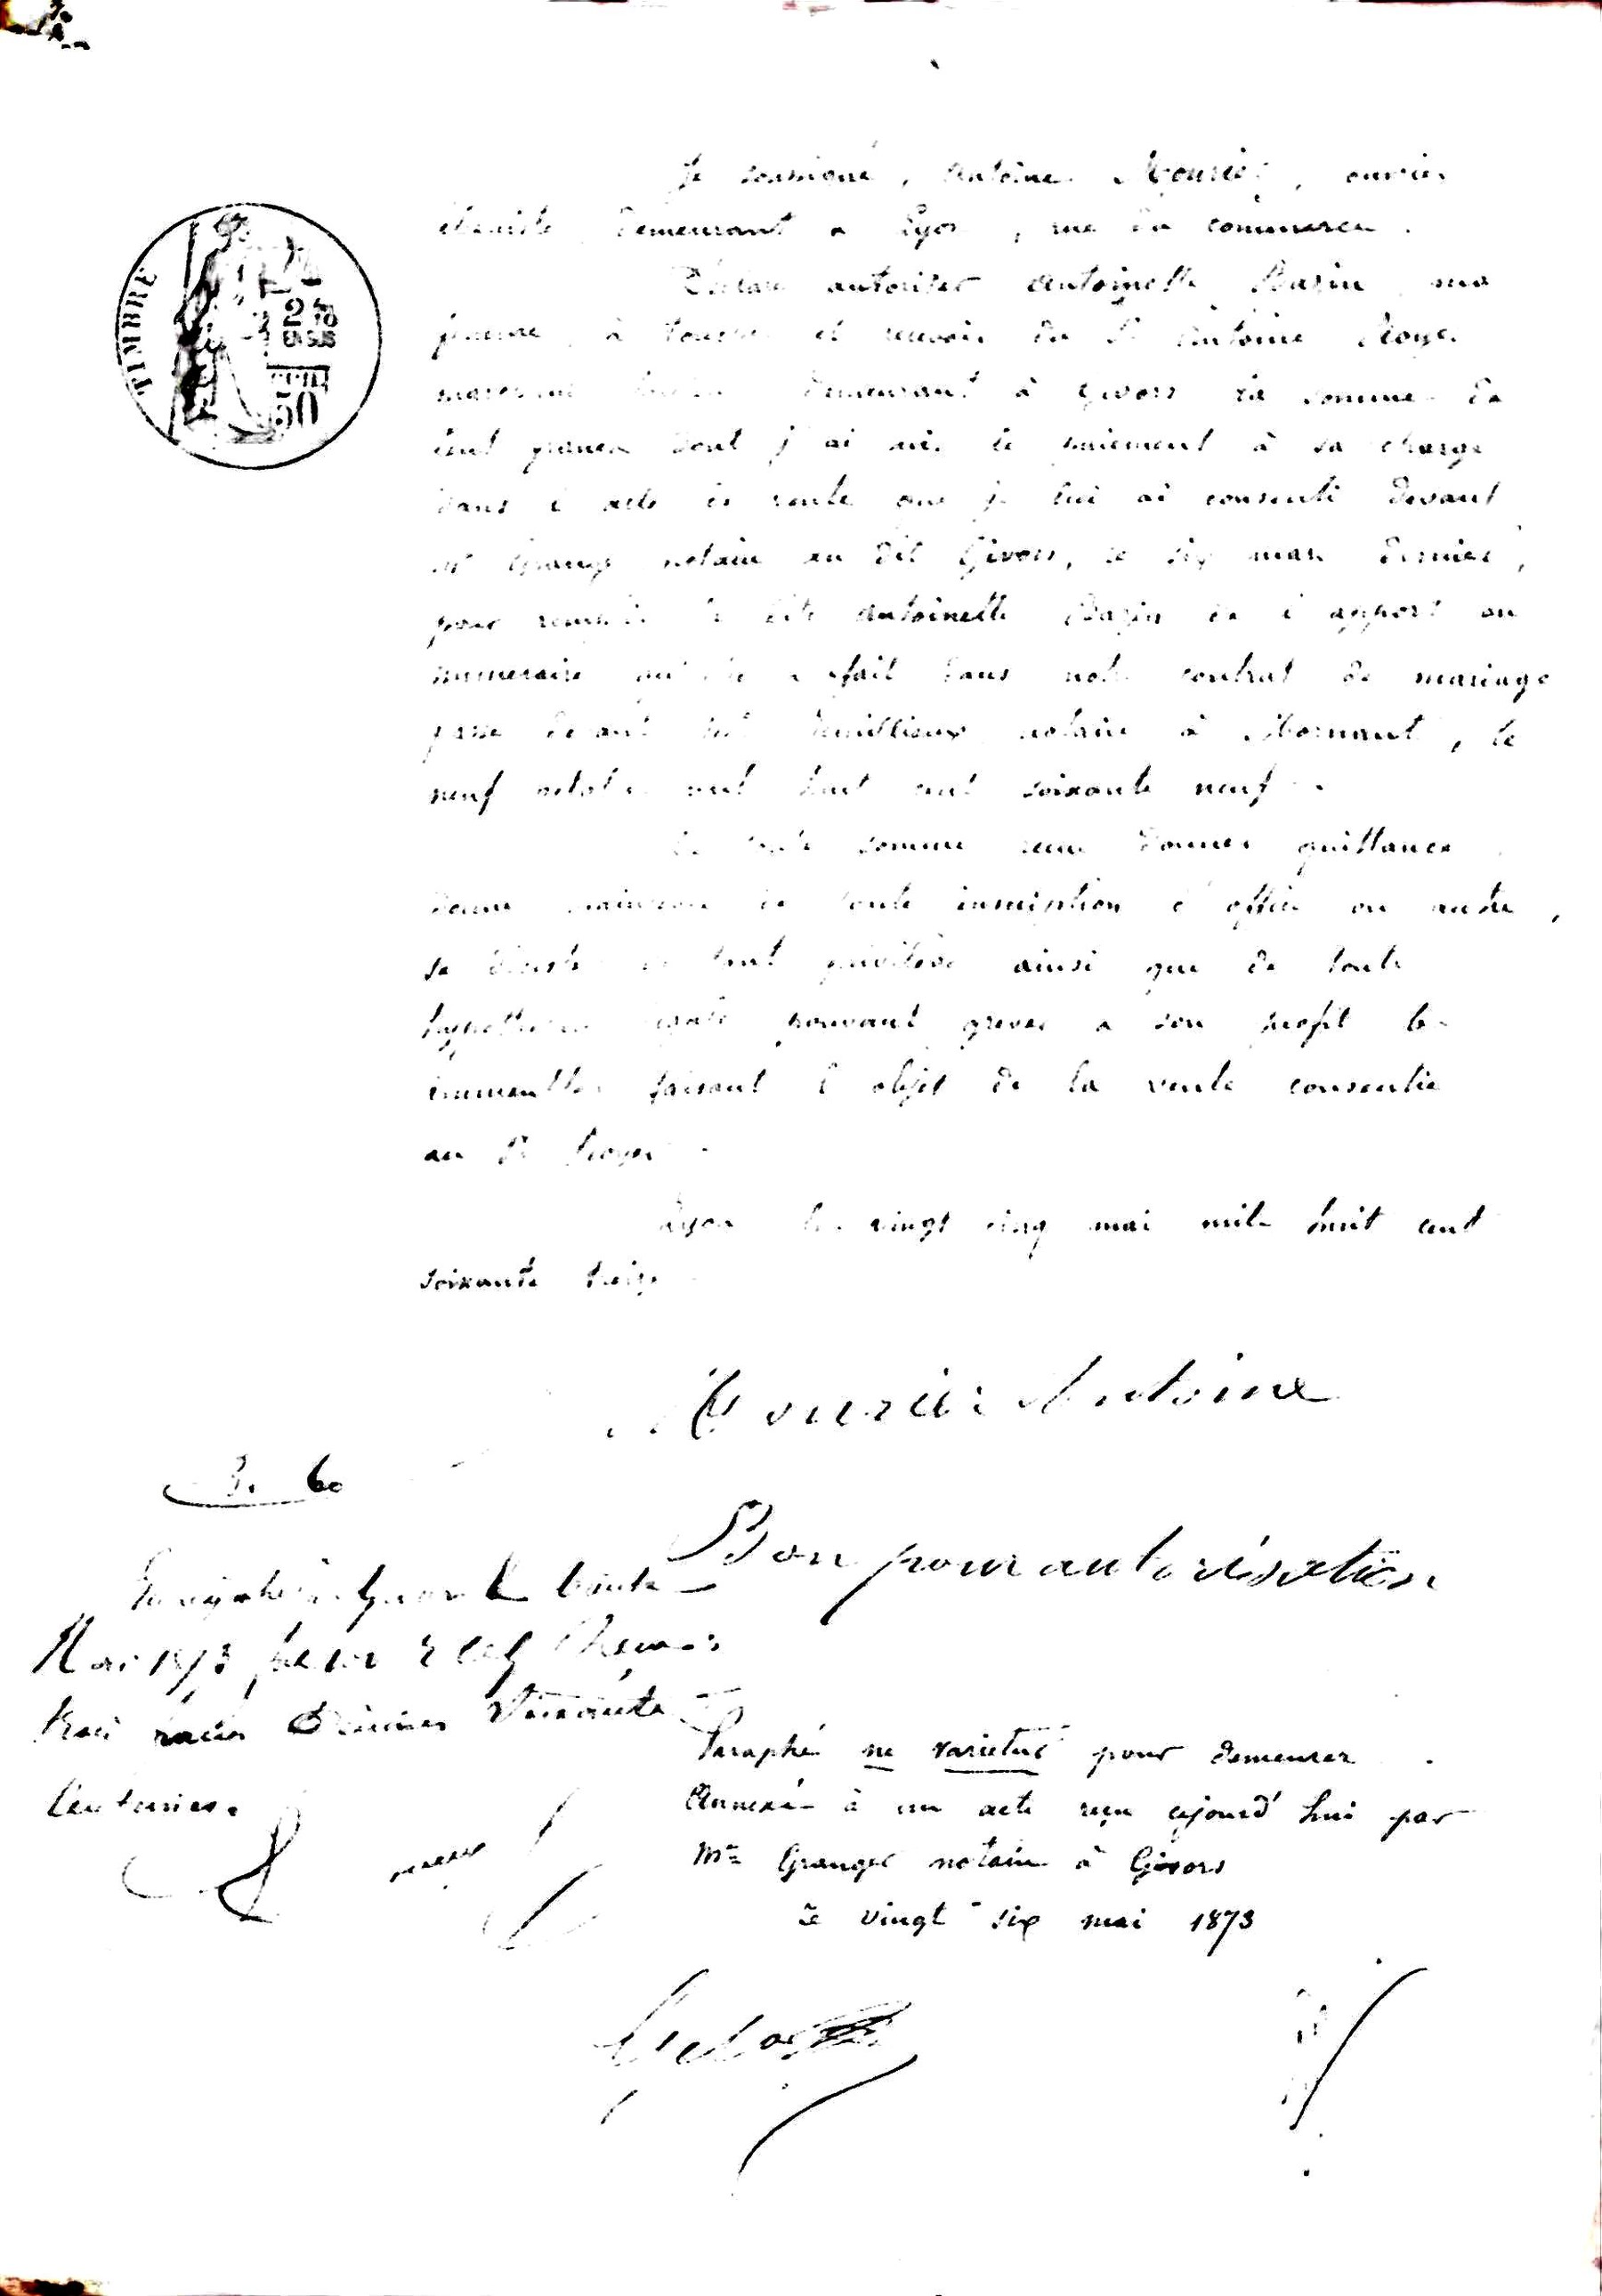 TIMBRE
2/10
EN SUS
50
Je soussigné, Antoine Mourier, ouvrier
ébéniste demeurant a Lyon, rue du commerce.
Déclare autoriser Antoinette Bazin ma
femme à toucher et recevoir du Sr Antoine Royer
demeurant à Givors la somme de
cent francs dont j'ai mis le paiement à sa charge
dans l'acte de vente que je lui ai consenti devant
Me Granger notaire au dit Givors, le six mars dernier,
pour remplir la dite Antoinette Bazin de l'apport en
numeraire qu'elle a fait dans notre contrat de mariage
passé devant Me notaire à Mornant, le
neuf octobre mil huit cent soixante neuf.
De toute somme recue donner quittance
donner mainlevée de toute inscription d'office ou autre,
se désister de tout privilège ainsi que de toute
hypothèque légale pouvant grever a son profit les
immeubles faisant l'objet de la vente consentie
au Sr Royer.
Lyon le vingt cinq mai mil huit cent
soixante treize
Mourier Antoine
3. 60
Bon pour autorisation
Enregistré à Givors le trente
Mai 1873 Reçu
trois francs Décimes Soixante
Centimes.
Paraphé ne varietur pour demeurer
Annexé à un acte reçu ajourd'hui par
Me Granger notaire à Givors
Le vingt six mai 1873